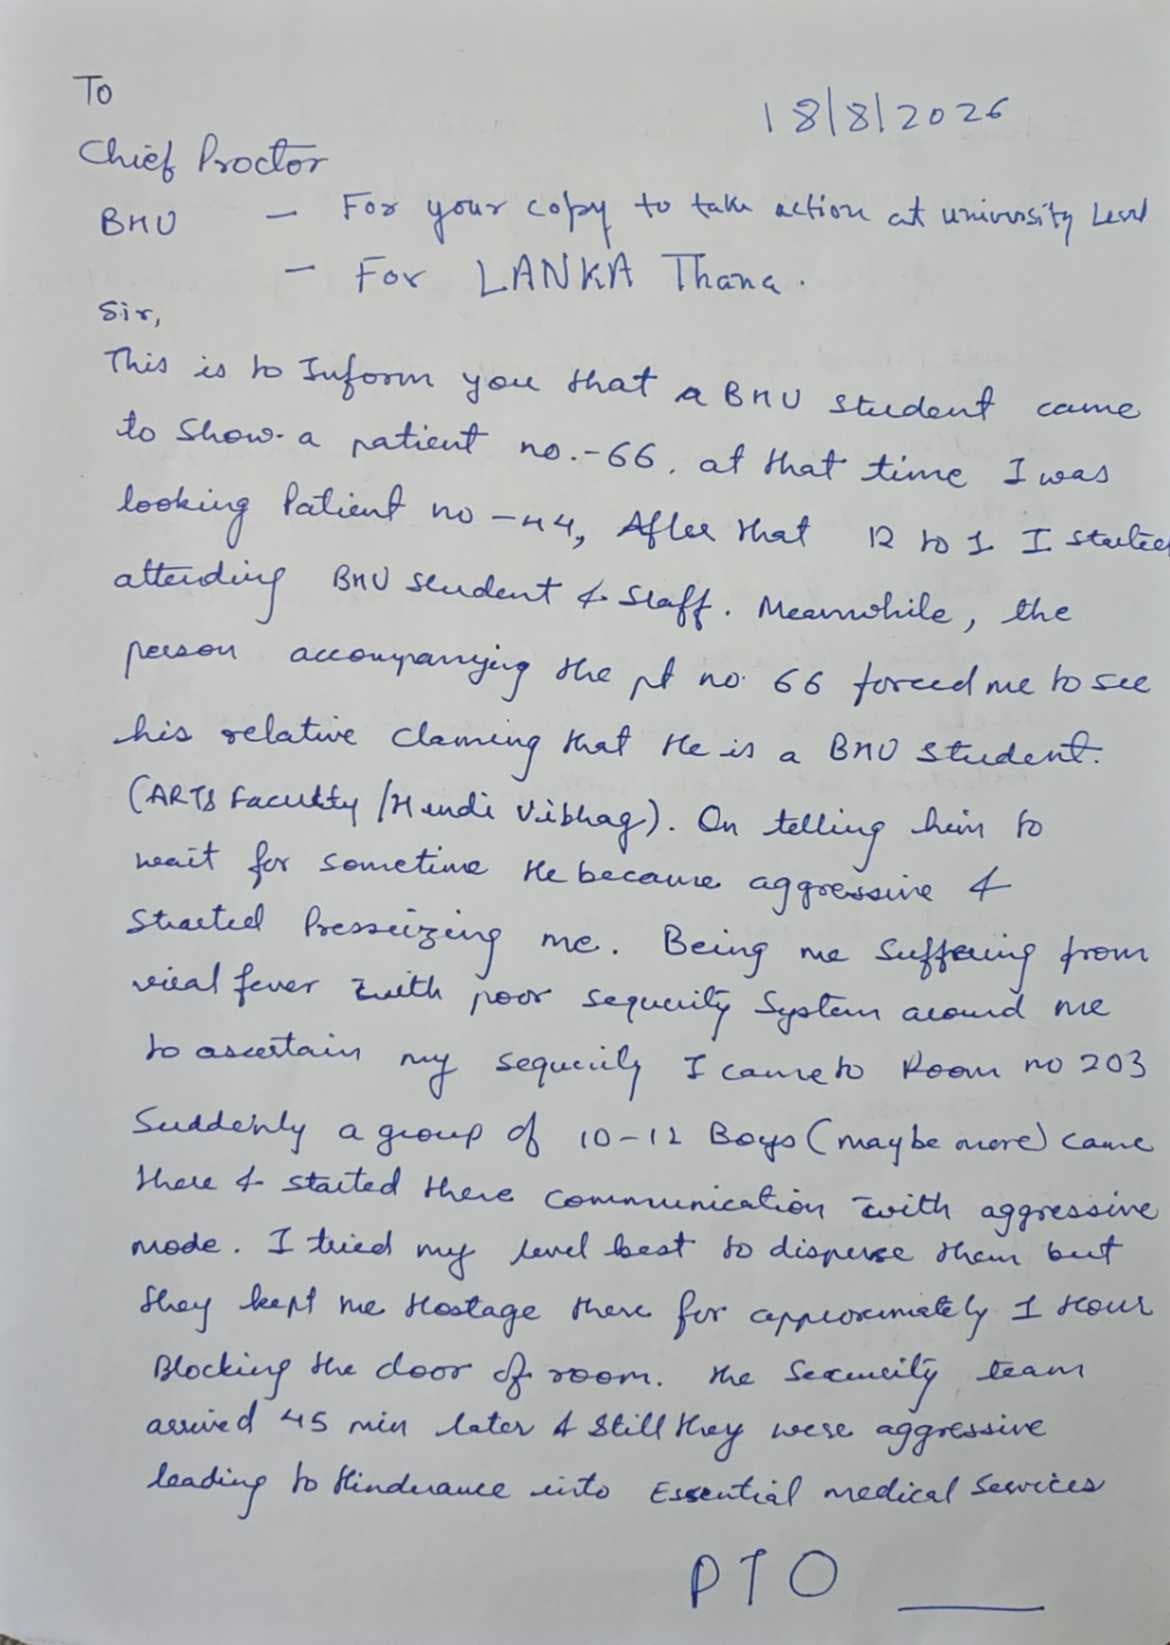 To
18/8/2026
Chief Proctor
BHU - For your copy to take action at university Level
- For LANKA Thana.
Sir,
This is to Inform you that a BHU student came
to Show a patient no.-66. at that time I was
looking Patient no -44, After that 12 to 1 I started
attending BHU student & Staff. Meanwhile, the
person accompanying the pt no. 66 forced me to see
his relative claming that He is a BHU student.
(ARTS Faculty /Hindi Vibhag). On telling him to
wait for sometime He became aggressive &
Started Pressizing me. Being me suffering from
viral fever with poor sequrity System around me
to ascertain my sequrity I came to Room no 203
Suddenly a group of 10-12 Boys (maybe more) came
there & started there communication with aggressive
mode. I tried my level best to disperse them but
they kept me Hostage there for approximately 1 Hour
Blocking the door of room. the Security team
arrived 45 min later & Still they were aggressive
leading to Hindrance into Essential medical Services
PTO